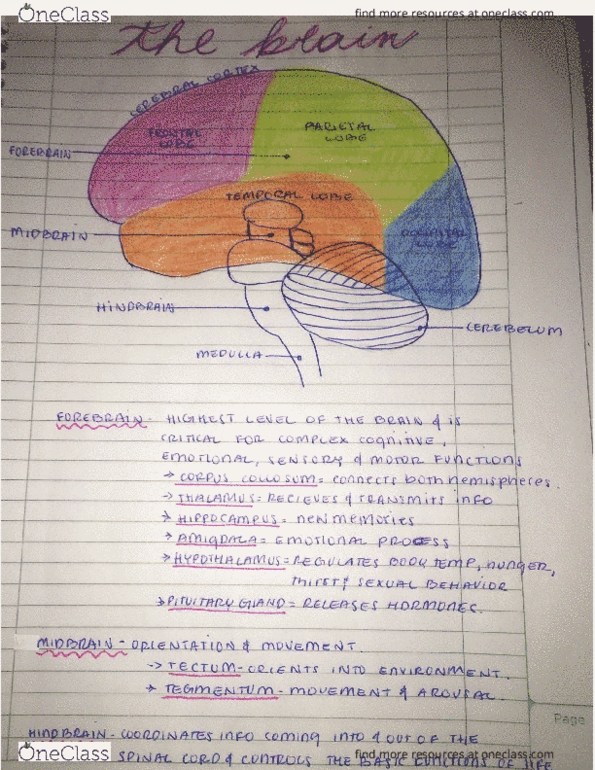 OneClass
find more resources at oneclass.com
the brain
CEREBRAL CORTEX
FRONTAL LOBE
PARIETAL LOBE
FOREBRAIN
TEMPORAL LOBE
MIDBRAIN
OCCIPITAL LOBE
HINDBRAIN
CEREBELUM
MEDULLA
FOREBRAIN - HIGHEST LEVEL OF THE BRAIN & IS
CRITICAL FOR COMPLEX COGNITIVE,
EMOTIONAL, SENSORY & MOTOR FUNCTIONS
→ CORPUS COLLOSUM = connects both hemispheres.
→ THALAMUS = RECIEVES & TRANSMITS INFO
→ HIPPOCAMPUS = new memories
→ AMIGDALA = EMOTIONAL PROCESS
→ HYPOTHALAMUS = REGULATES BODY TEMP, HUNGER,
THIRST & SEXUAL BEHAVIOR
→ PITUITARY GLAND = RELEASES HORMONES.
MIDBRAIN - ORIENTATION & MOVEMENT.
→ TECTUM - ORIENTS INTO ENVIRONMENT.
→ TEGMENTUM - MOVEMENT & AROUSAL
Page
HINDBRAIN - COORDINATES INFO COMING INTO & OUT OF THE
SPINAL CORD & CONTROLS THE BASIC FUNCTIONS OF LIFE
OneClass
find more resources at oneclass.com